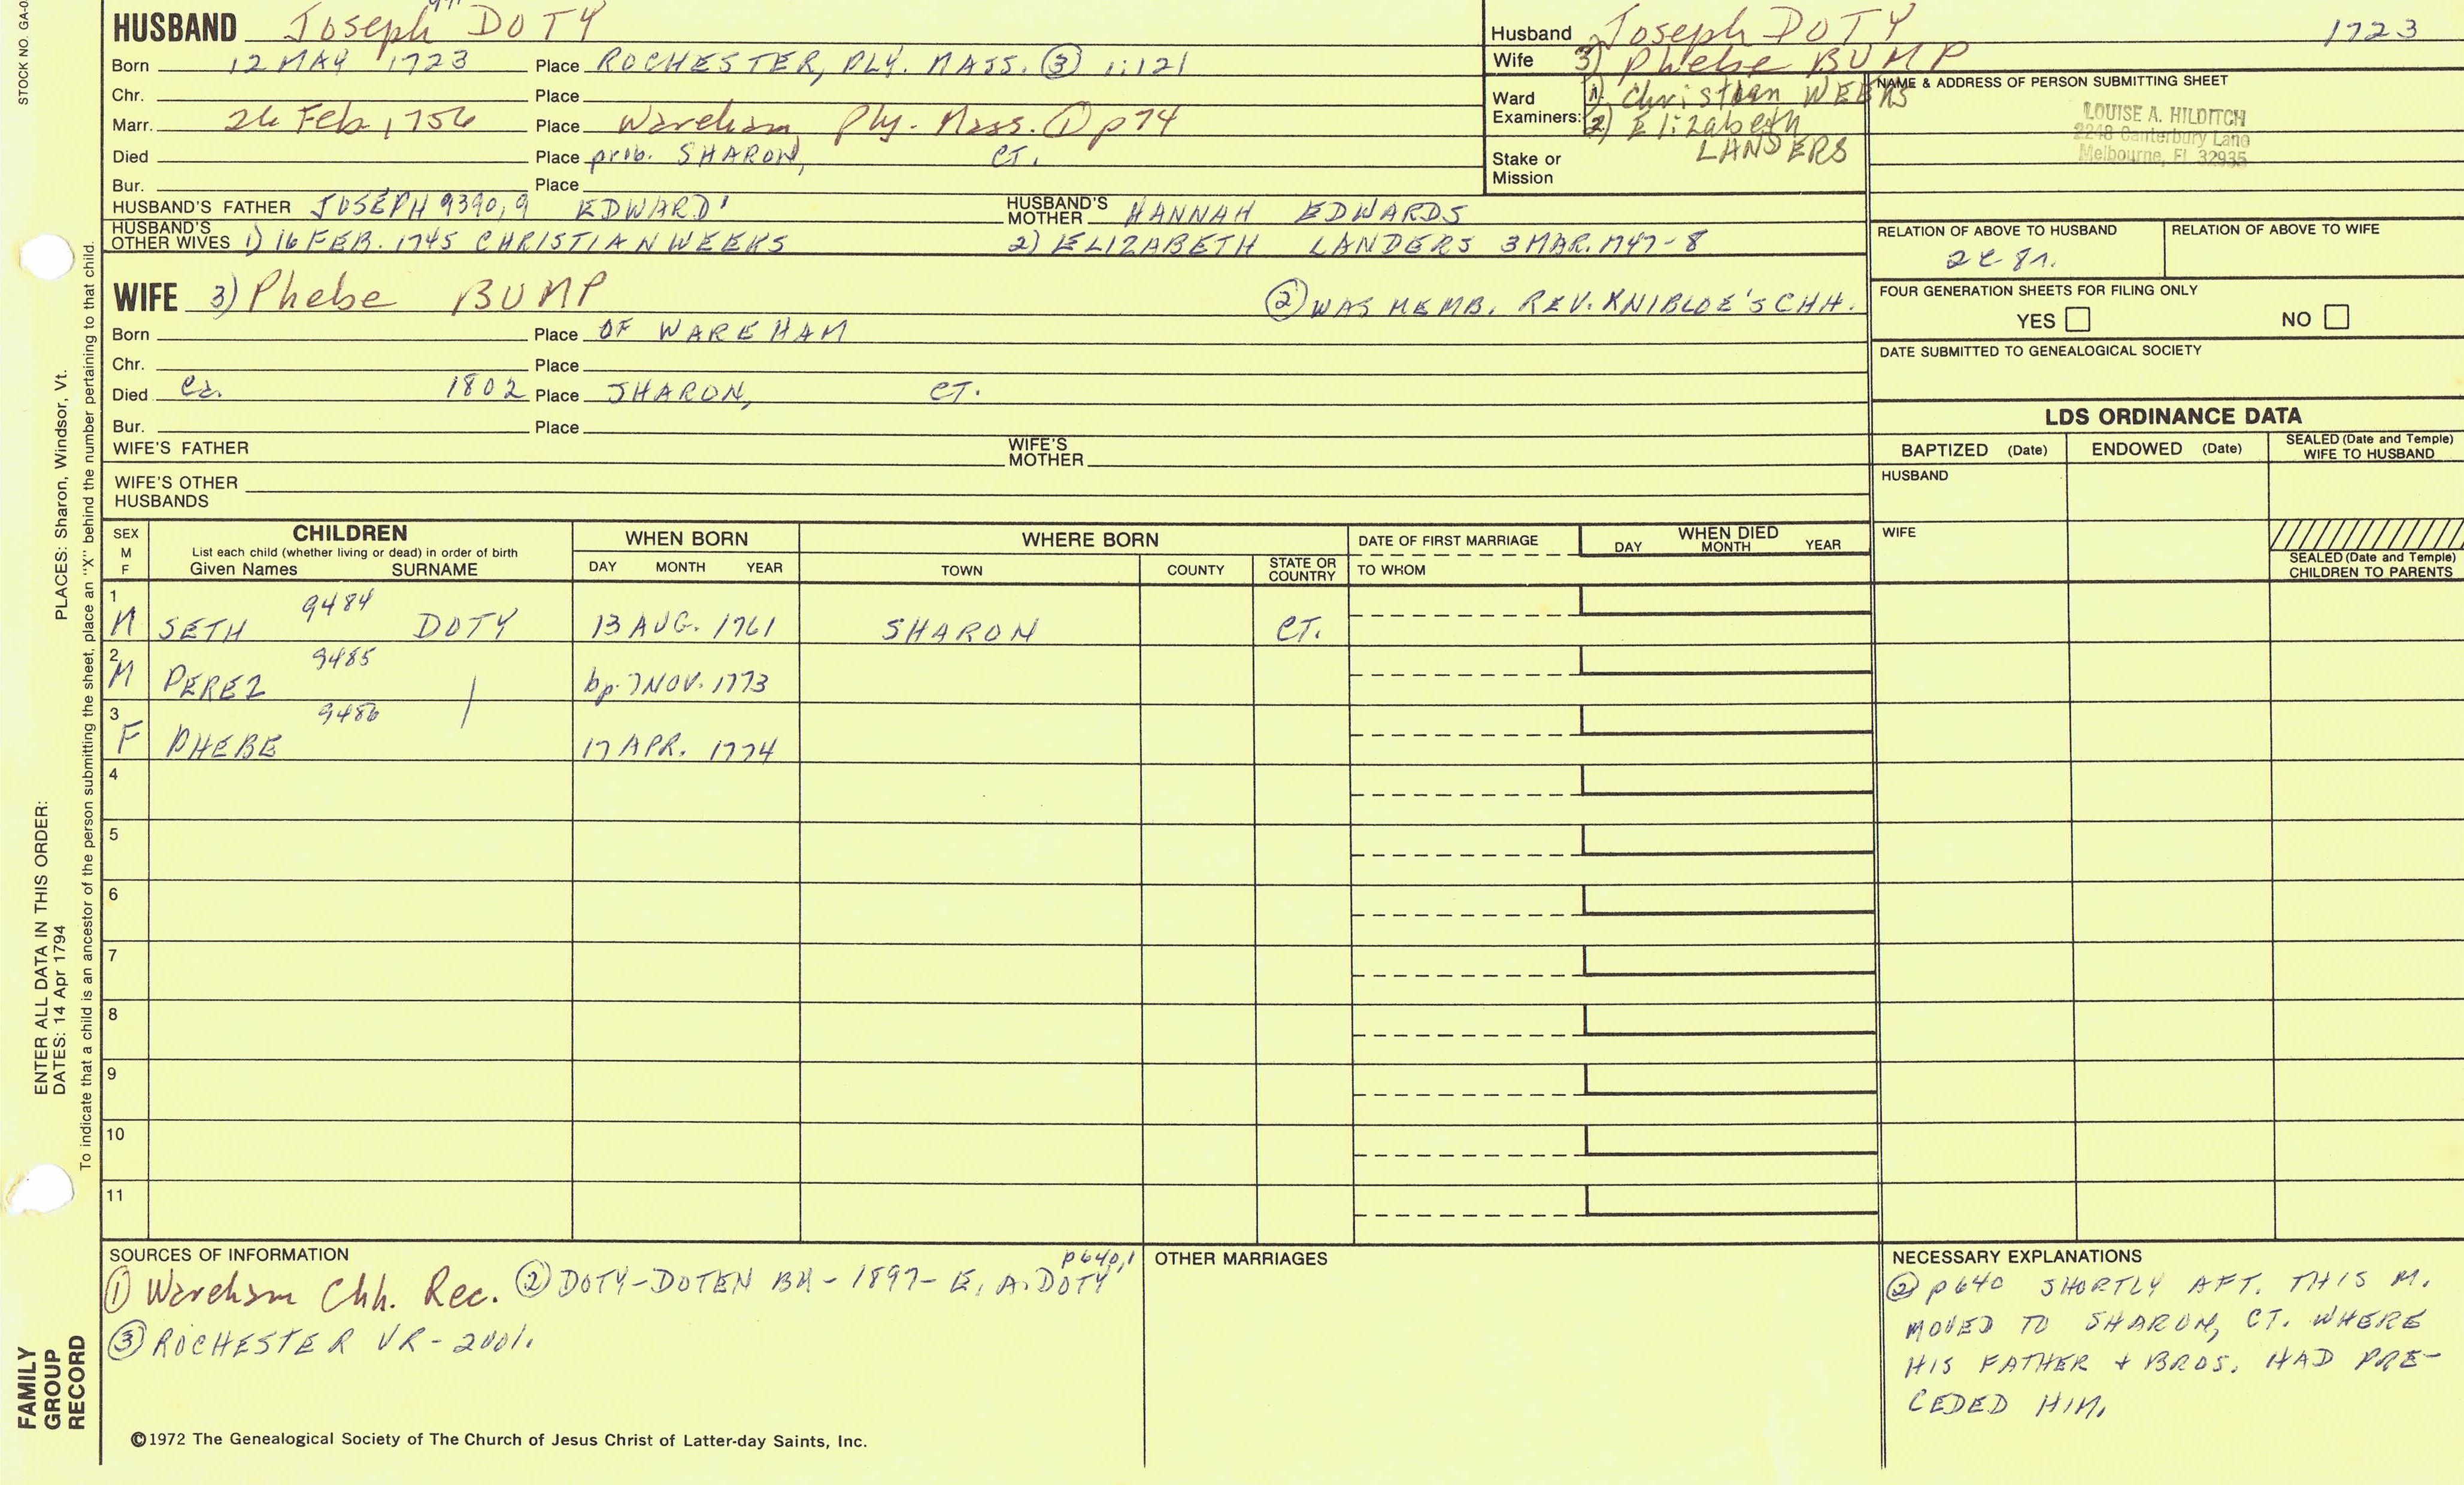 STOCK NO. GA-0
HUSBAND Joseph DOTY
Born 12 MAY 1723 Place ROCHESTER, PLY. MASS. ③ 1:121
Chr. Place
Marr. 26 Feb 1756 Place Wareham, Ply. Mass. ① p74
Died Place prob. SHARON, CT.
Bur. Place
HUSBAND'S FATHER JOSEPH 9390,9 EDWARD'
HUSBAND'S MOTHER HANNAH EDWARDS
HUSBAND'S OTHER WIVES 1) 16 FEB. 1745 CHRISTIAN WEEKS 2) ELIZABETH LANDERS 3 MAR. 1747-8
Husband Joseph DOTY 1723
Wife 3) Phebe BUMP
Ward Examiners: 1) Christian WEEKS
2) Elizabeth LANDERS
Stake or Mission
NAME & ADDRESS OF PERSON SUBMITTING SHEET
LOUISE A. HILDITCH
2248 Canterbury Lane
Melbourne, Fl 32935
RELATION OF ABOVE TO HUSBAND
RELATION OF ABOVE TO WIFE
FOUR GENERATION SHEETS FOR FILING ONLY
YES NO
DATE SUBMITTED TO GENEALOGICAL SOCIETY
WIFE 3) Phebe BUMP ② WAS MEMB. REV. KNIBLOE'S CHH.
Born Place OF WAREHAM
Chr. Place
Died ca. 1802 Place SHARON, CT.
Bur. Place
WIFE'S FATHER
WIFE'S MOTHER
WIFE'S OTHER HUSBANDS
LDS ORDINANCE DATA
BAPTIZED (Date) ENDOWED (Date) SEALED (Date and Temple) WIFE TO HUSBAND
HUSBAND
WIFE
SEALED (Date and Temple) CHILDREN TO PARENTS
SEX M F
CHILDREN
List each child (whether living or dead) in order of birth
Given Names SURNAME
WHEN BORN
DAY MONTH YEAR
WHERE BORN
TOWN COUNTY STATE OR COUNTRY
DATE OF FIRST MARRIAGE
TO WHOM
WHEN DIED
DAY MONTH YEAR
1 M SETH 9484 DOTY 13 AUG. 1761 SHARON CT.
2 M PEREZ 9485 bp. 7 NOV. 1773
3 F PHEBE 9486 17 APR. 1774
4
5
6
7
8
9
10
11
SOURCES OF INFORMATION
① Wareham Chh. Rec. ② DOTY-DOTEN BK - 1897 - E. A. DOTY p640,1
③ ROCHESTER VR - 2vol.
OTHER MARRIAGES
NECESSARY EXPLANATIONS
② p640 SHORTLY AFT. THIS M.
MOVED TO SHARON, CT. WHERE
HIS FATHER + BROS. HAD PRE-
CEDED HIM.
©1972 The Genealogical Society of The Church of Jesus Christ of Latter-day Saints, Inc.
FAMILY GROUP RECORD
ENTER ALL DATA IN THIS ORDER:
DATES: 14 Apr 1794 PLACES: Sharon, Windsor, Vt.
To indicate that a child is an ancestor of the person submitting the sheet, place an "X" behind the number pertaining to that child.